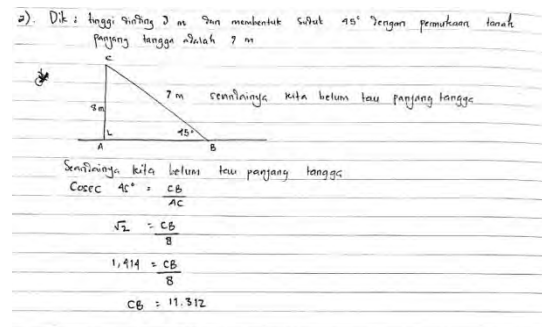 2). Dik : tinggi dinding 8 m dan membentuk sudut 45° dengan permukaan tanah
panjang tangga adalah 7 m
C
7 m seandainya kita belum tau panjang tangga
8m
45°
A B
Seandainya kita belum tau panjang tangga
Cosec 45° = CB
AC
√2 = CB
8
1,414 = CB
8
CB = 11.312